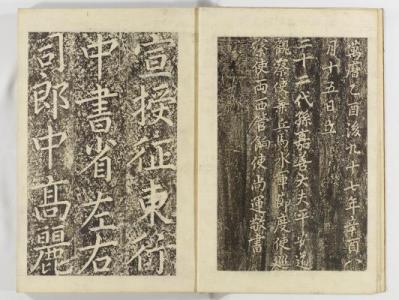 萬曆乙酉後九十七年辛酉八
月十五日立
代孫嘉善大夫平安道
觀察使兼兵馬水軍節度使巡
察使兩西管餉使尚運敬書
宣授征東行
中書省左右
司郎中高麗